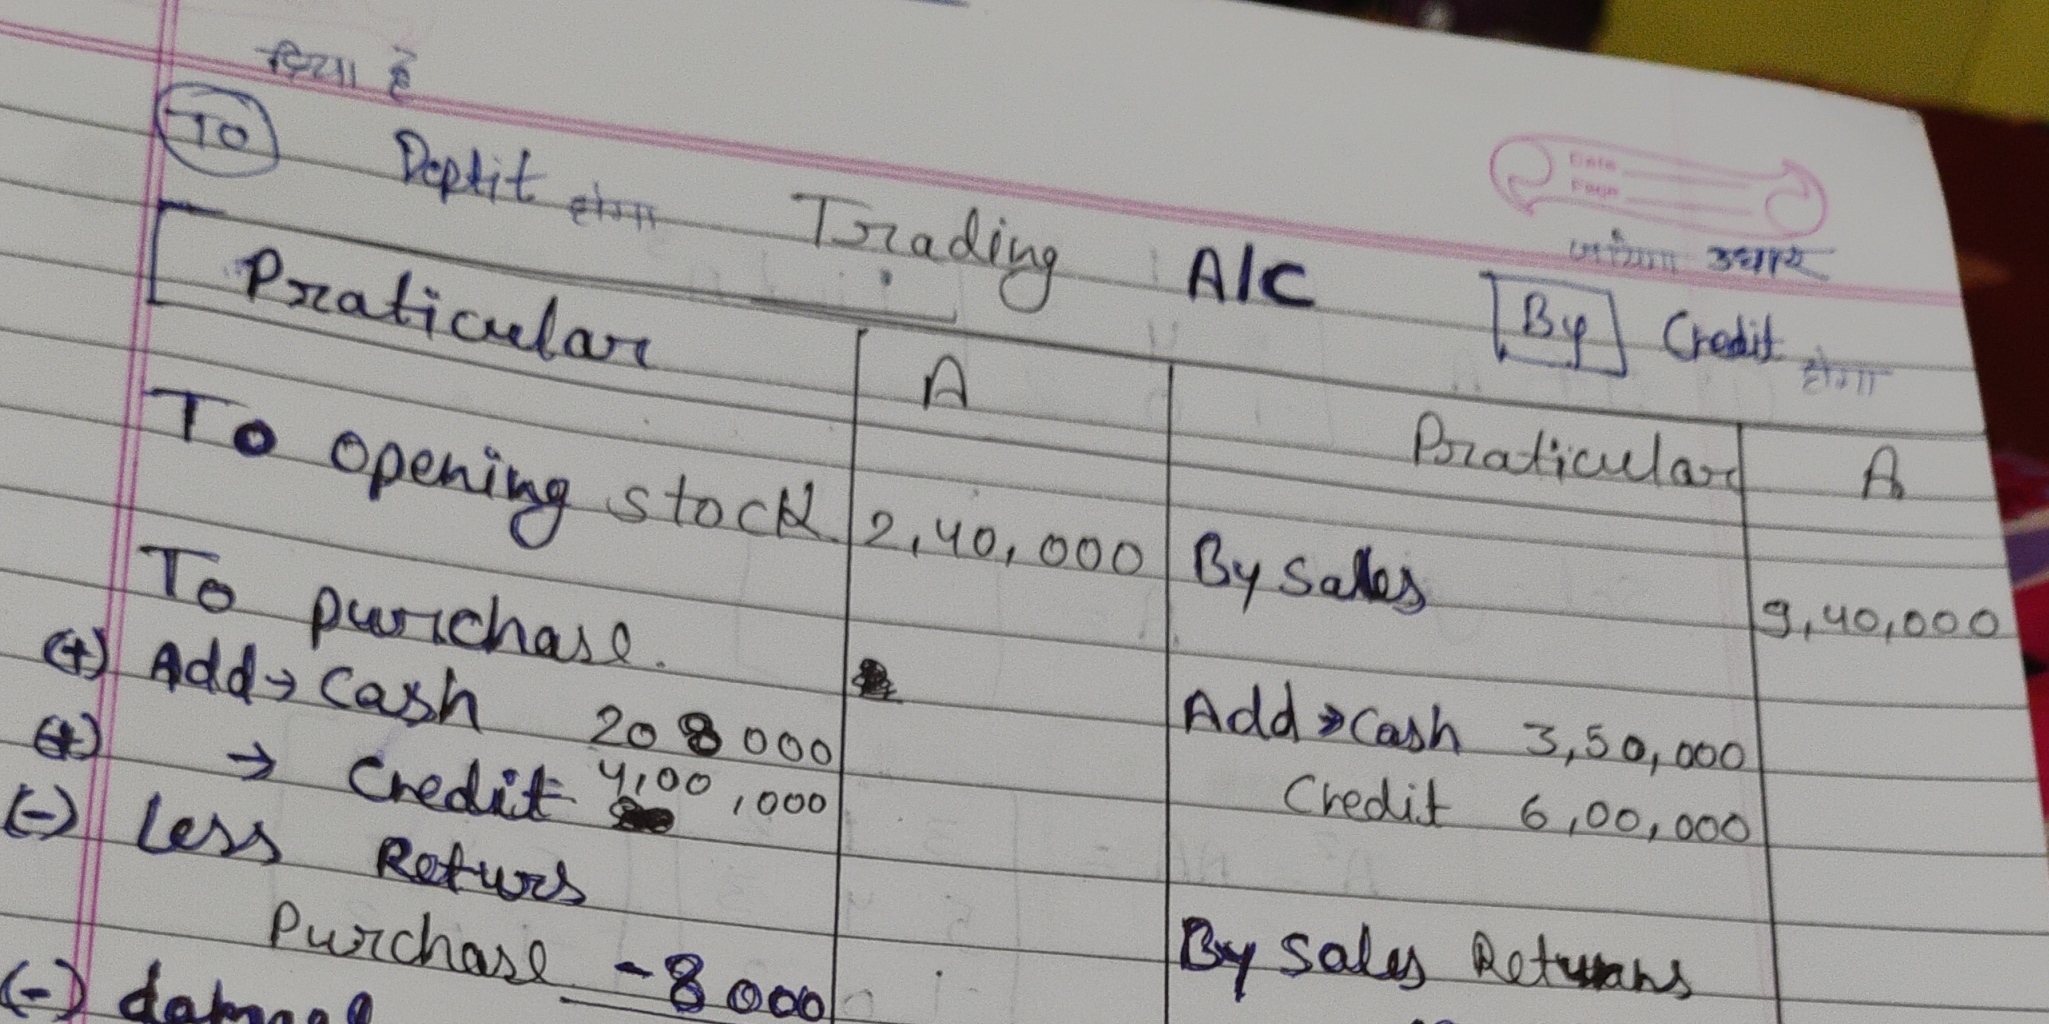 दिया है
To Deptit होगा Trading A/C
उधार
By Credit होगा
Praticular A Praticular A
To opening stock 2,40,000 By Sales 9,40,000
To purchase.
(+) Add → Cash 208000 Add → Cash 3,50,000
(+) → Credit 4,00,000 Credit 6,00,000
(-) Less Returs
Purchase -8000 By Sales Returns
(-)